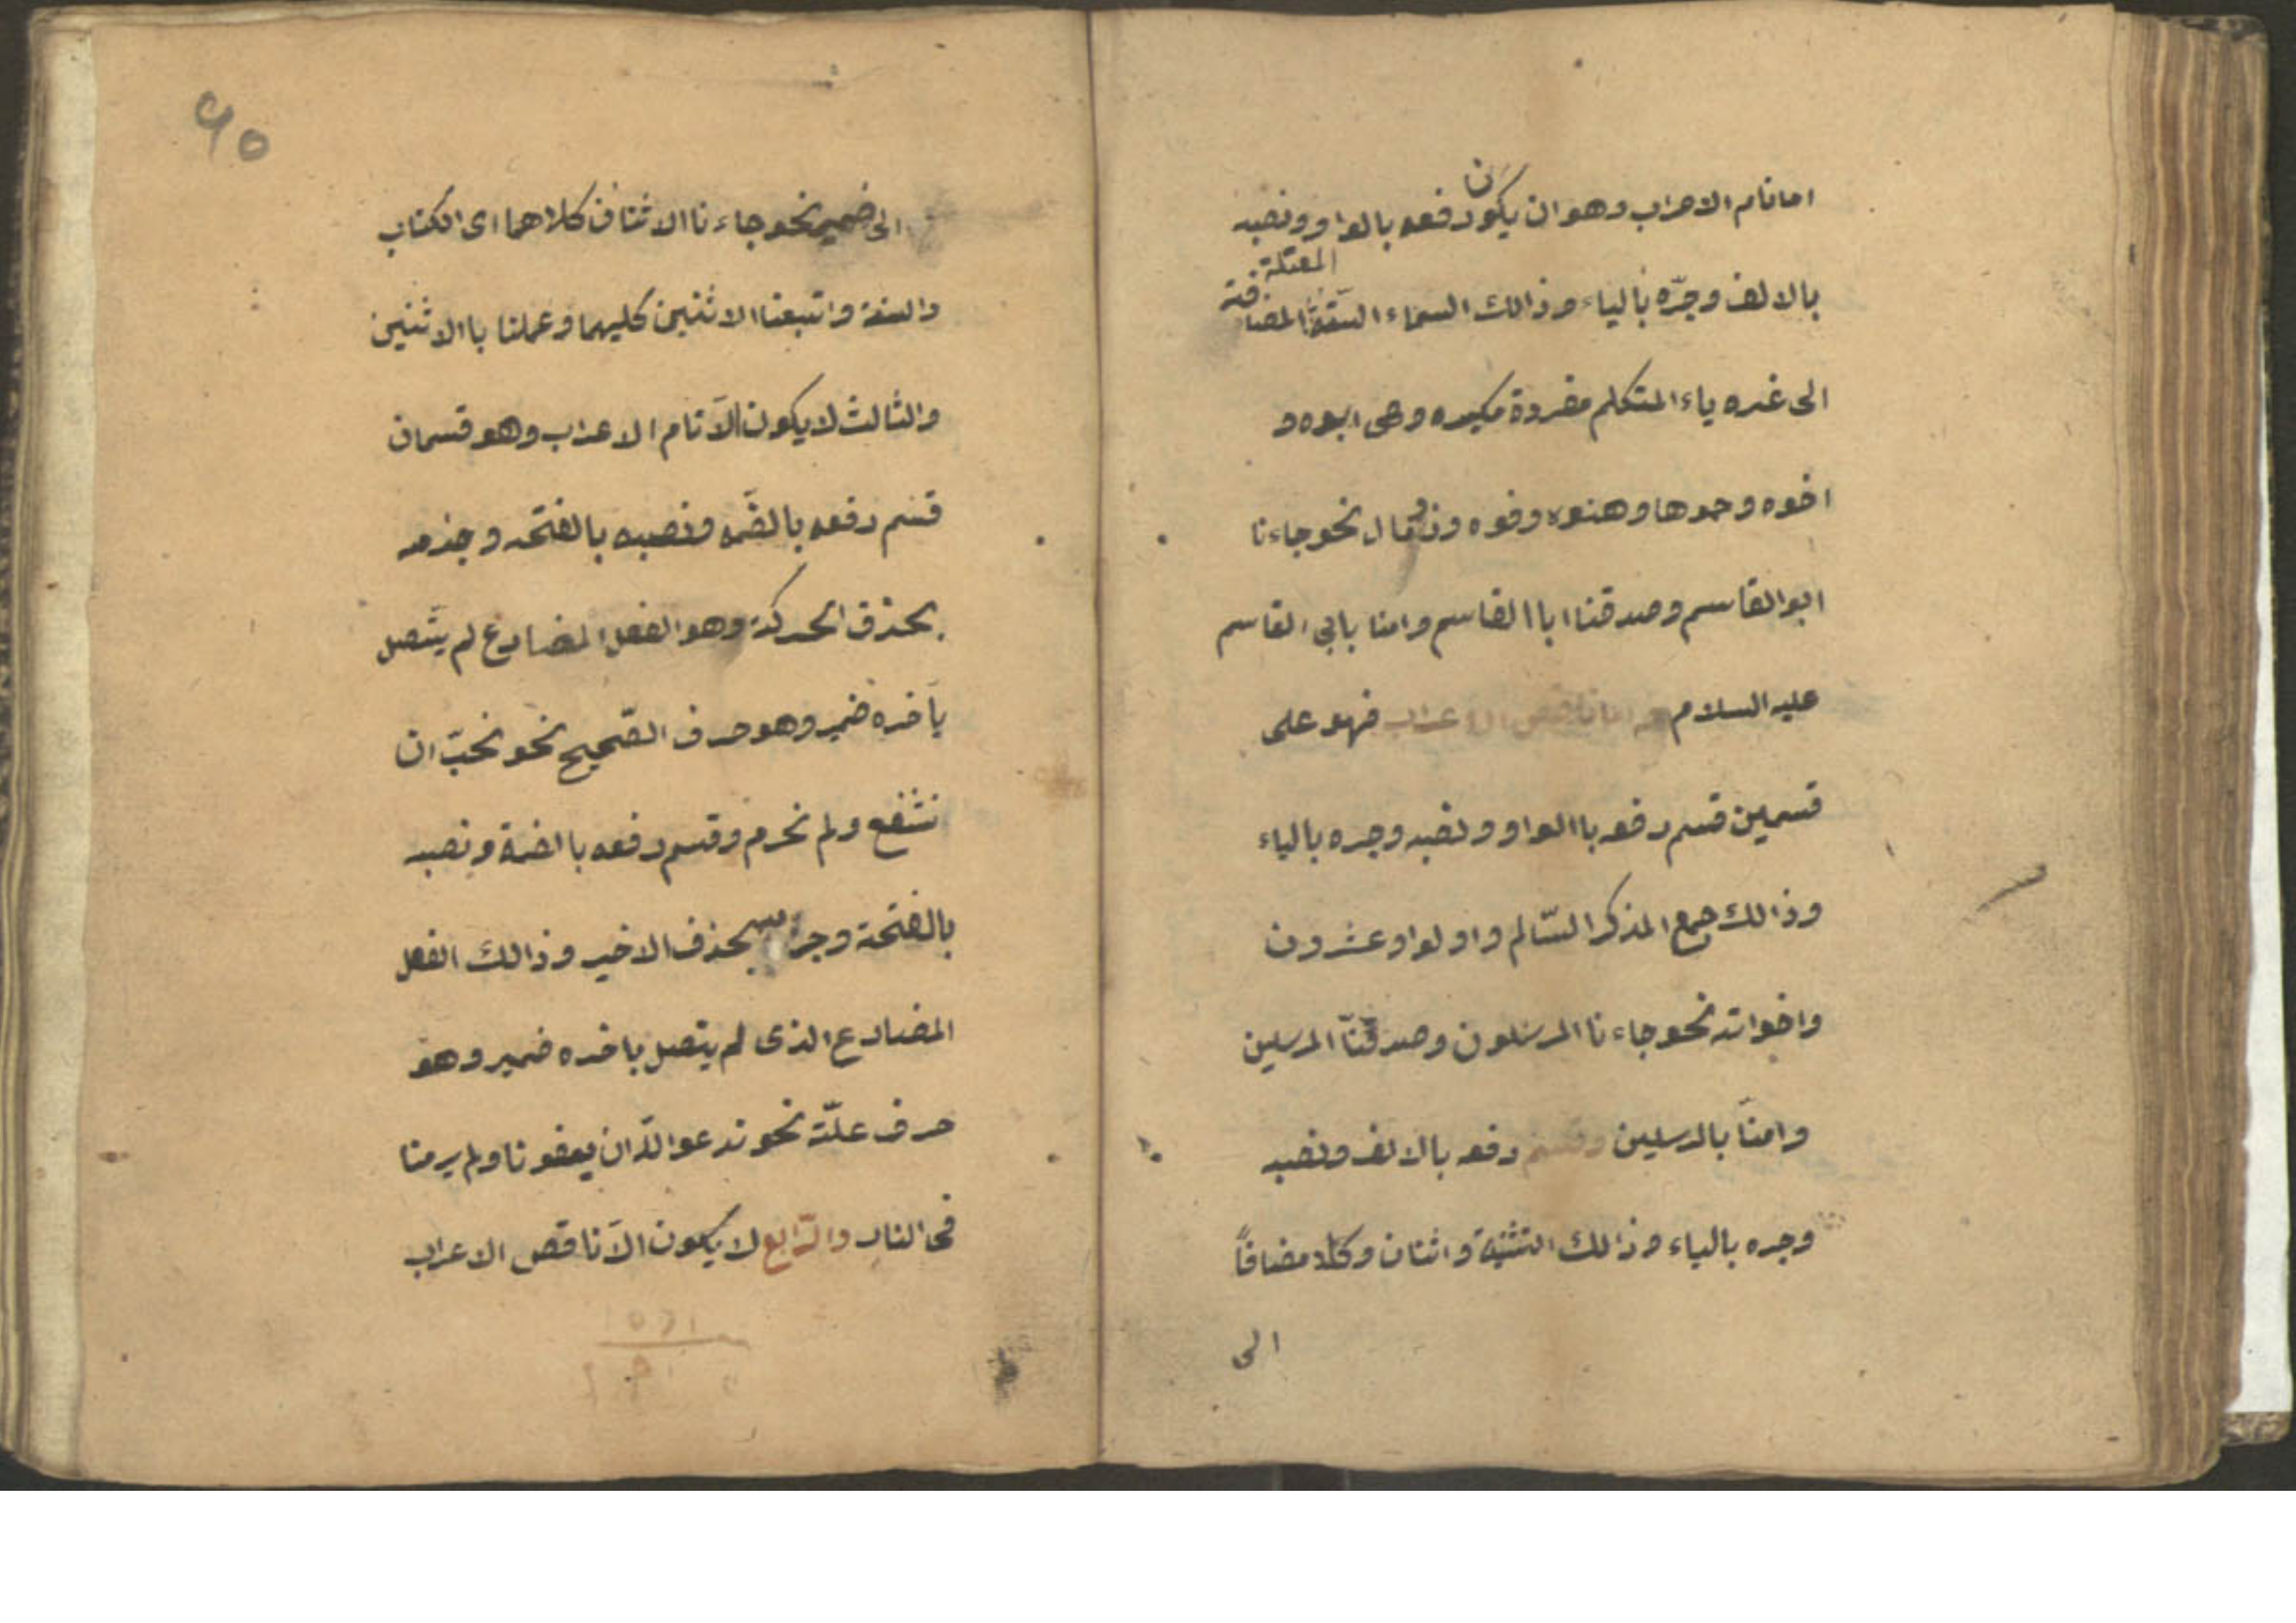 اما تام الاعراب وهو ان يكون رفعه بالواو ونصبه
بالالف وجرّه بالياء وذالك السماء الستة المعتلة المضافة
الى غيره ياء المتكلم مفردة مكبره وهى ابوه و
اخوه وحموها وهنوه وفوه وذو مال نحو جاءنا
ابوالقاسم وصدقنا ابا القاسم وامنا بابى القاسم
عليه السلام واما ناقص الاعراب فهو على
قسمين قسم رفعه باالواو ونصبه وجره بالياء
وذالك جمع المذكر السّالم واولوا وعشرون
واخواته نحو جاءنا المرسلون وصدقنّا المرسلين
وامنّا بالمرسلين وقسم رفعه بالالف ونصبه
وجره بالياء وذالك التثنية واثنان وكلا مضافاً
الى
٩٥
الى ضمير نحو جاءنا الاثنان كلاهما اى الكتاب
والسنة واتبعنا الاثنين كليهما وعملنا باالاثنين
والثالث لا يكون الّا تام الاعراب وهو قسمان
قسم رفعه بالضّمه ونصبه بالفتحه وجزمه
بحذف الحركة وهو الفعل المضارع لم يتّصل
بآخره ضمير وهو حرف الصّحيح نحو نحبّ ان
نشفع ولم نحرم وقسم رفعه باالضمة ونصبه
بالفتحة وجزمه بحذف الاخير وذالك الفعل
المضارع الذى لم يتصل باخره ضمير وهو
حرف علّة نحو ندعوا اللّه ان يعفونا ولم يرمنا
فى النار والرّابع لا يكون الّا ناقص الاعراب